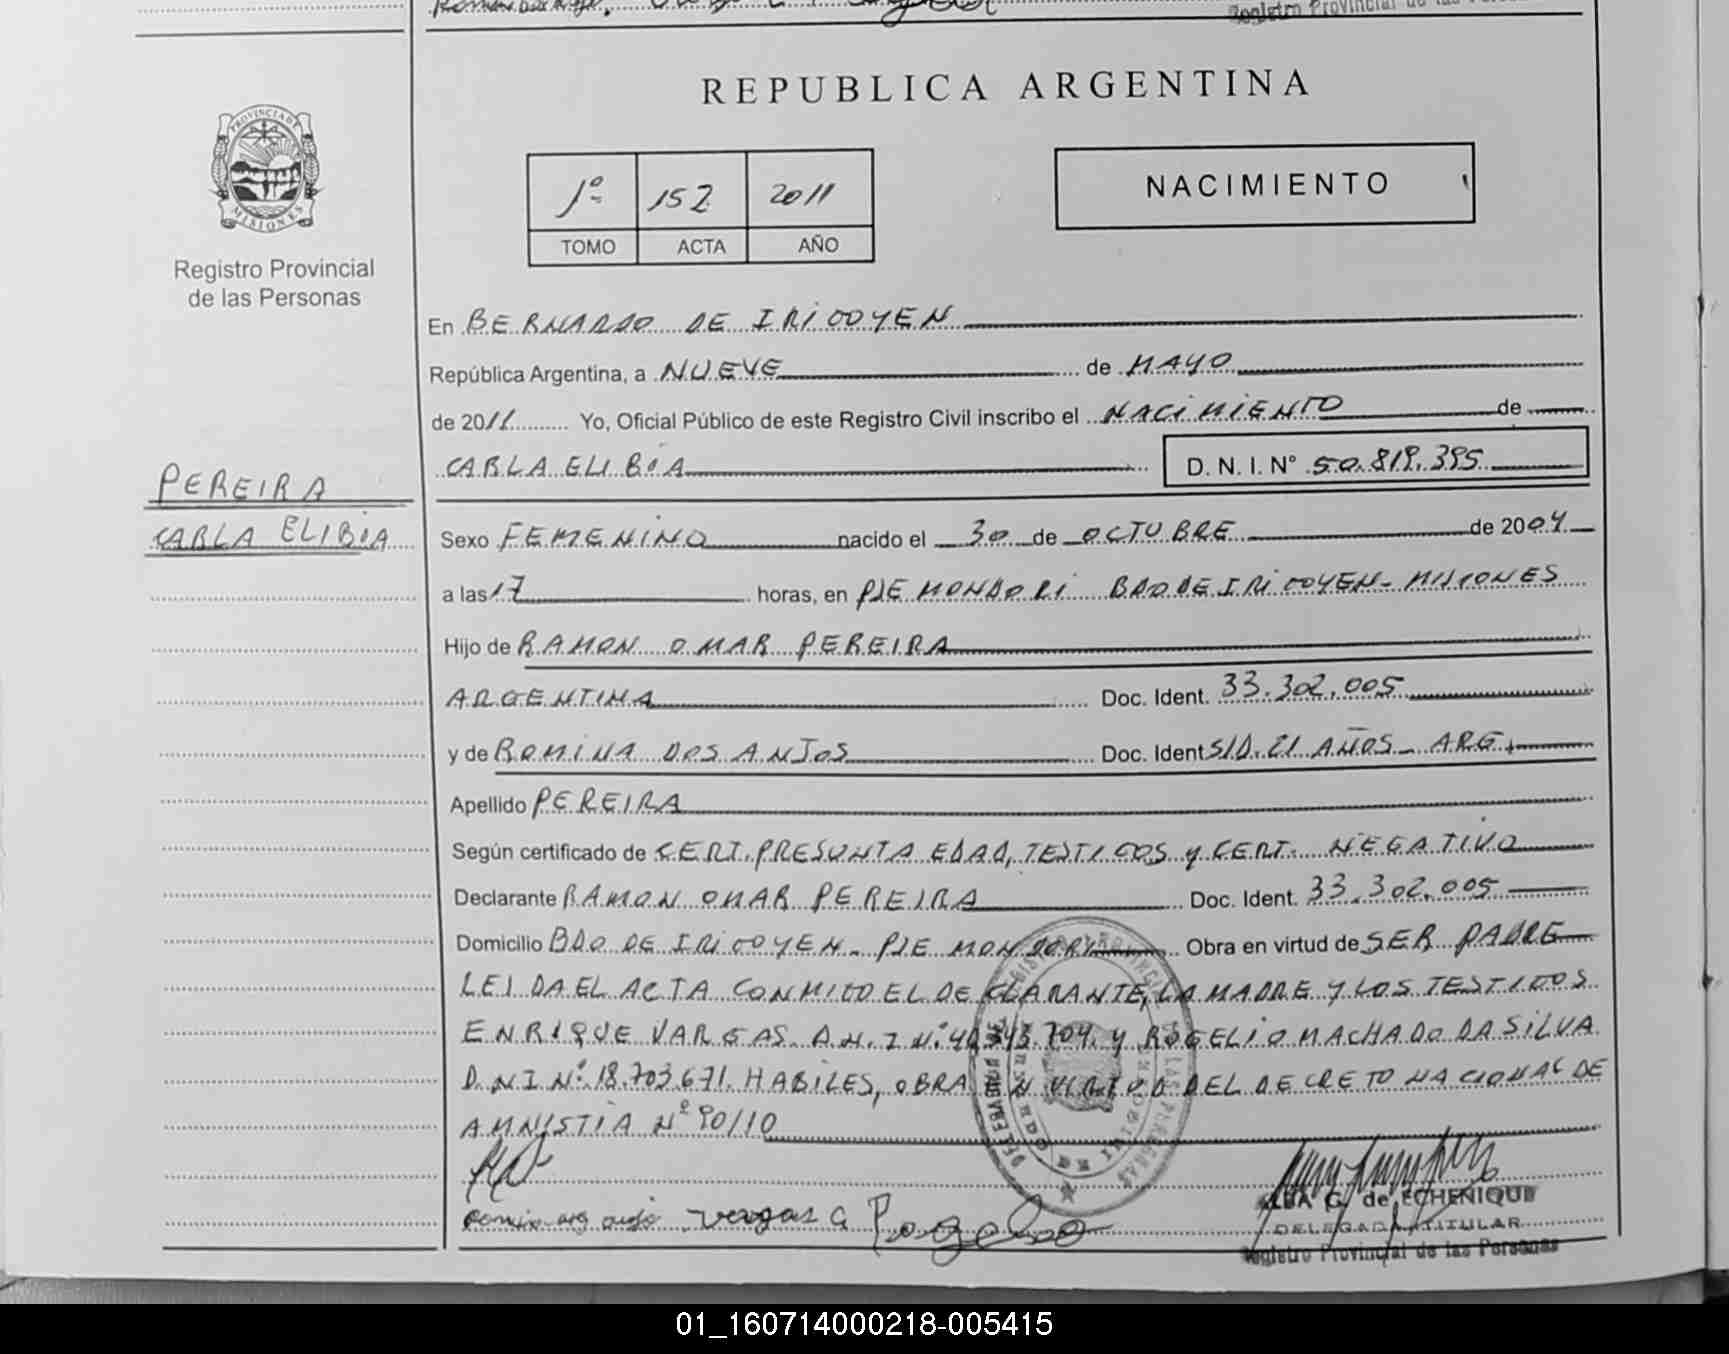 Registro Provincial de las Personas
REPUBLICA ARGENTINA
PROVINCIA DE
MISIONES
Registro Provincial
de las Personas
1º 152 2011
TOMO ACTA AÑO
NACIMIENTO
En BERNARDO DE IRIGOYEN
República Argentina, a NUEVE de MAYO
de 2011 Yo, Oficial Público de este Registro Civil inscribo el NACIMIENTO de
CARLA ELIBIA D. N. I. N° 50.819.395
PEREIRA
CARLA ELIBIA
Sexo FEMENINO nacido el 30 de OCTUBRE de 2004
a las 17 horas, en PJE MONDORI BDO DE IRIGOYEN - MISIONES
Hijo de RAMON OMAR PEREIRA
ARGENTINA Doc. Ident. 33.302.005
y de ROMINA DOS ANJOS Doc. Ident S/D. 21 AÑOS - ARG.
Apellido PEREIRA
Según certificado de CERT. PRESUNTA EDAD, TESTIGOS y CERT. NEGATIVO
Declarante RAMON OMAR PEREIRA Doc. Ident. 33.302.005
Domicilio BDO DE IRIGOYEN - PJE MONDORI Obra en virtud de SER PADRE
LEIDA EL ACTA CONMIGO EL DECLARANTE, LA MADRE Y LOS TESTIGOS
ENRIQUE VARGAS D.N.I Nº 40.343.704 y ROGELIO MACHADO DA SILVA
D.NI Nº 18.703.671 HABILES, OBRA EN VIRTUD DEL DECRETO NACIONAL DE
AMNISTIA Nº 90/10
vargas
ALBA G. de ECHENIQUE
DELEGADA TITULAR
Registro Provincial de las Personas
01_160714000218-005415